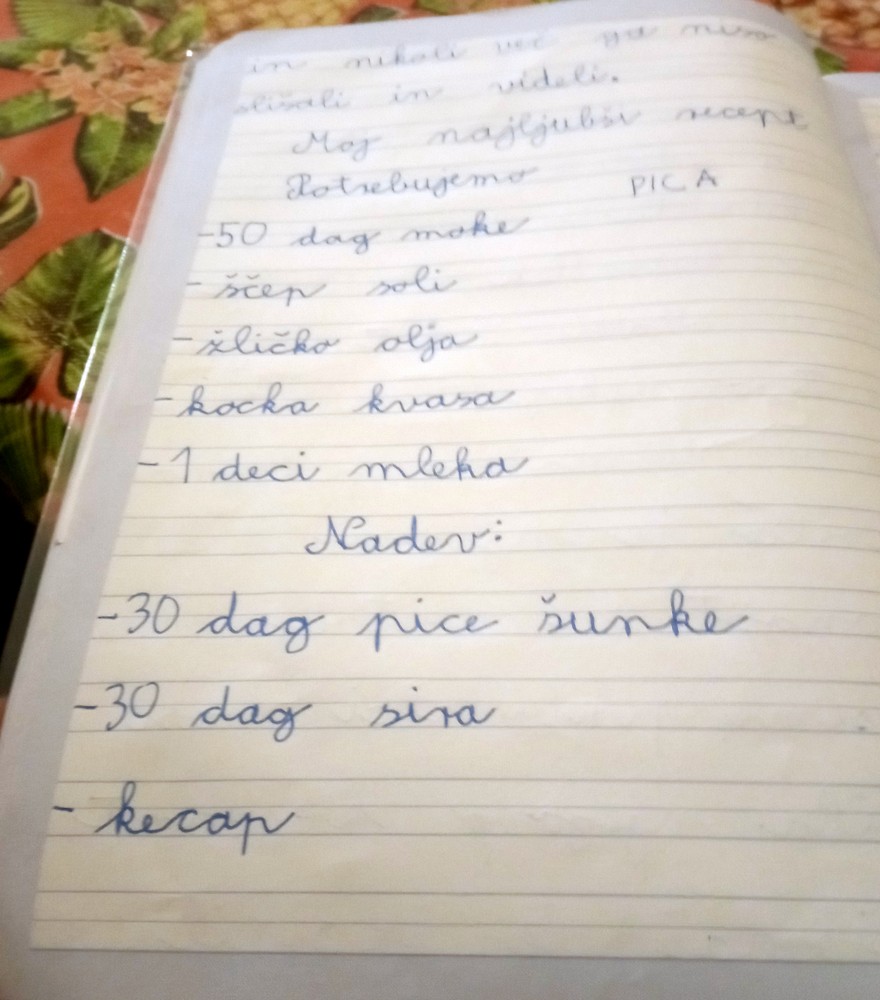 in nikoli več ga niso
slišali in videli.
Moj najljubši recept
Potrebujemo PICA
-50 dag moke
- ščep soli
- žličko olja
- kocka kvasa
- 1 deci mleka
Nadev:
-30 dag pice šunke
-30 dag sira
- kecap